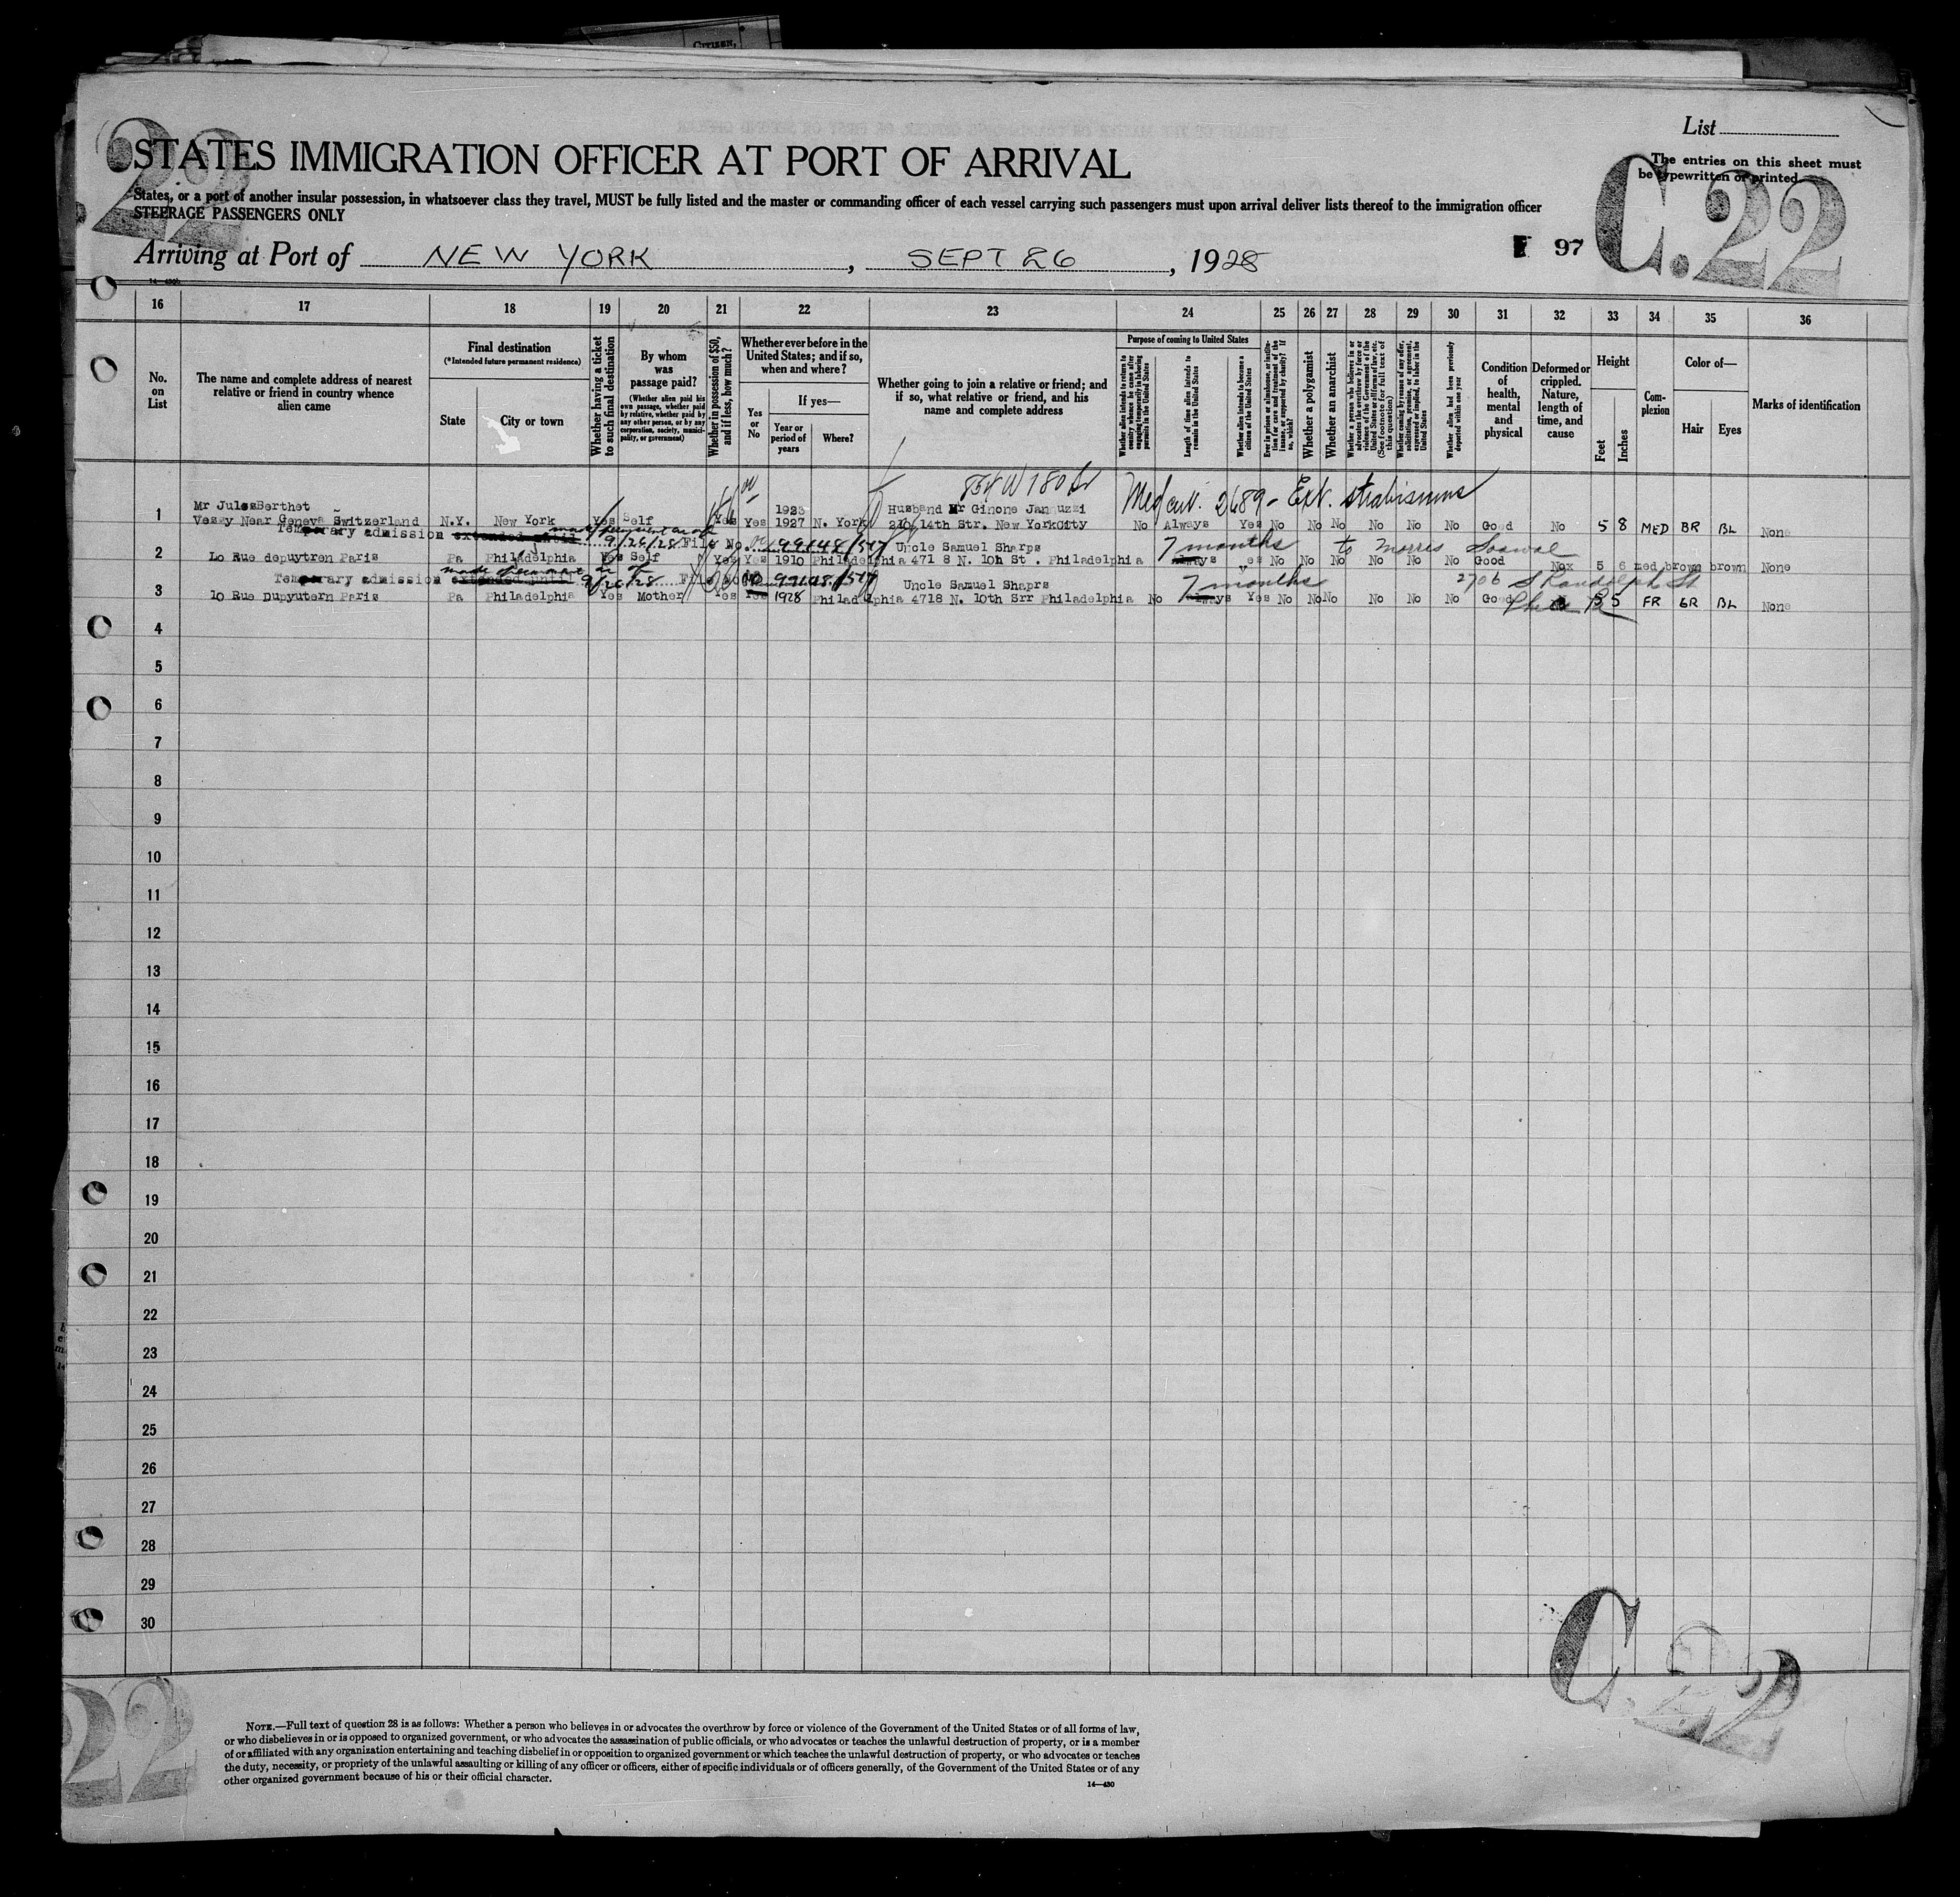 CITIZEN,
22
List
STATES IMMIGRATION OFFICER AT PORT OF ARRIVAL
The entries on this sheet must
be typewritten or printed.
C.22
States, or a port of another insular possession, in whatsoever class they travel, MUST be fully listed and the master or commanding officer of each vessel carrying such passengers must upon arrival deliver lists thereof to the immigration officer
STEERAGE PASSENGERS ONLY
Arriving at Port of NEW YORK, SEPT 26, 1928
97
16 17 18 19 20 21 22 23 24 25 26 27 28 29 30 31 32 33 34 35 36
No. on List
The name and complete address of nearest relative or friend in country whence alien came
Final destination
(*Intended future permanent residence)
State
City or town
Whether having a ticket to such final destination
By whom was passage paid?
(Whether alien paid his own passage, whether paid by relative, whether paid by any other person, or by any corporation, society, municipality, or government)
Whether in possession of $50, and if less, how much?
Whether ever before in the United States; and if so, when and where?
Yes or No
If yes—
Year or period of years
Where?
Whether going to join a relative or friend; and if so, what relative or friend, and his name and complete address
Purpose of coming to United States
Whether alien intends to return to country whence he came after engaging temporarily in laboring pursuits in the United States
Length of time alien intends to remain in the United States
Whether alien intends to become a citizen of the United States
Ever in prison or almshouse, or institution for care and treatment of the insane, or supported by charity? If so, which?
Whether a polygamist
Whether an anarchist
Whether a person who believes in or advocates the overthrow by force or violence of the Government of the United States or all forms of law, etc. (See footnote for full text of this question)
Whether coming by reason of any offer, solicitation, promise, or agreement, expressed or implied, to labor in the United States
Whether alien had been previously deported within one year
Condition of health, mental and physical
Deformed or crippled. Nature, length of time, and cause
Height
Feet
Inches
Complexion
Color of—
Hair
Eyes
Marks of identification
854 W 180 St
Med cert. 2689 - Ext. strabismus
Mr Jules Berthet 1923 Husband Mr Ginone Januzzi
1 Vessy Near Geneva Switzerland N.Y. New York Yes Self Yes Yes 1927 N. York 210 14th Str. New YorkCity No Always Yes No No No No No No Good No 5 8 MED BR BL None
Temporary admission extended until made permanent 9/26/28 File No. 99148/547 Uncle Samuel Sharps 7 months to Morris
2 Lo Rue depuytren Paris Pa Philadelphia Yes Self Yes Yes 1910 Philadelphia 471 8 N. 10h St . Philadelphia always yes No No No No No No Good Nox 5 6 med brown brown None
Temporary admission extended until made permanent 9/26/28 File No. 99148/547 Uncle Samuel Shaprs 7 months 2706 S Randolph St
3 10 Rue Dupyutern Paris Pa Philadelphia Yes Mother Yes Yes 1928 Philadelphia 4718 N. 10th Srr Philadelphia No always Yes No No No No No No Good Phila Pa 5 5 FR GR BL None
4
5
6
7
8
9
10
11
12
13
14
15
16
17
18
19
20
21
22
23
24
25
26
27
28
29
30
C.22
22
NOTE.—Full text of question 28 is as follows: Whether a person who believes in or advocates the overthrow by force or violence of the Government of the United States or of all forms of law,
or who disbelieves in or is opposed to organized government, or who advocates the assassination of public officials, or who advocates or teaches the unlawful destruction of property, or is a member
of or affiliated with any organization entertaining and teaching disbelief in or opposition to organized government or which teaches the unlawful destruction of property, or who advocates or teaches
the duty, necessity, or propriety of the unlawful assaulting or killing of any officer or officers, either of specific individuals or of officers generally, of the Government of the United States or of any
other organized government because of his or their official character.
14—430